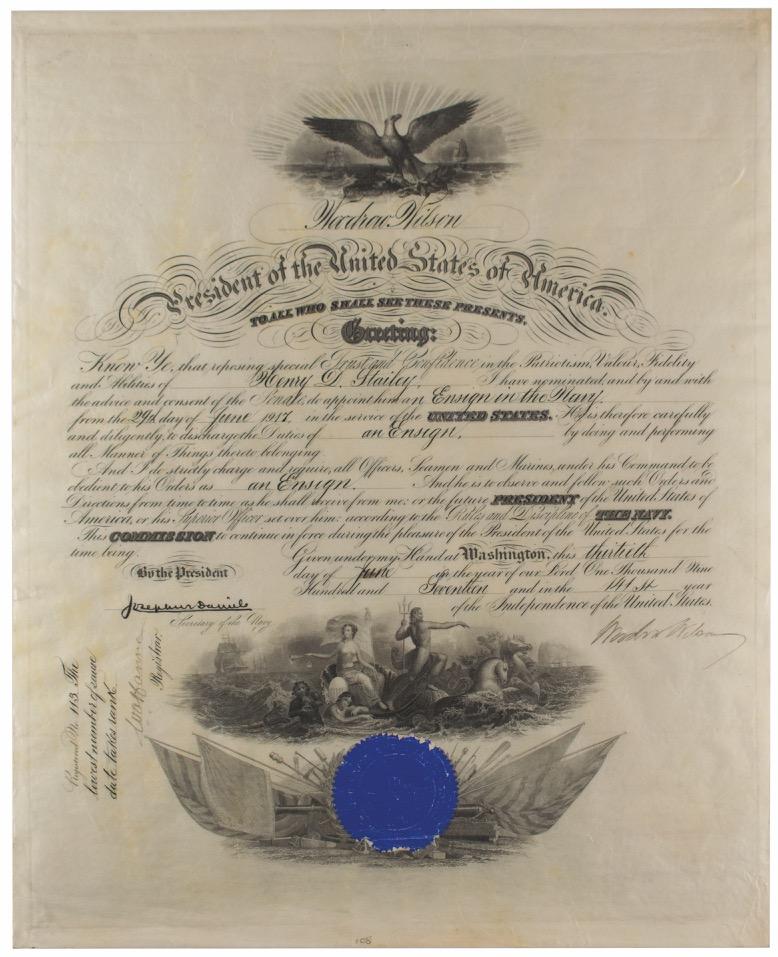 Woodrow Wilson
President of the United States of America.
TO ALL WHO SHALL SEE THESE PRESENTS,
Greeting:
Know Ye, that reposing special Trust and Confidence in the Patriotism, Valour, Fidelity
and Abilities of Henry D. Stailey. I have nominated, and by and with
the advice and consent of the Senate, do appoint him an Ensign in the Navy.
from the 29th day of June 1917. in the service of the UNITED STATES. He is therefore carefully
and diligently, to discharge the Duties of an Ensign. by doing and performing
all Manner of Things thereto belonging.
And I do strictly charge and require, all Officers, Seamen and Marines, under his Command to be
obedient to his Orders as an Ensign. And he is to observe and follow such Orders and
Directions from time to time as he shall receive from me: or the future PRESIDENT of the United States of
America, or his Superior Officer set over him: according to the Rules and Discipline of THE NAVY.
This COMMISSION to continue in force during the pleasure of the President of the United States for the
time being.
Given under my Hand at Washington, this thirtieth
day of June in the year of our Lord, One Thousand Nine
Hundred and Seventeen and in the 141st. year
of the Independence of the United States.
By the President
Josephus Daniels
Secretary of the Navy
Woodrow Wilson
Registered No. 113 The
lowest number of same
date takes rank.
Registrar.
108